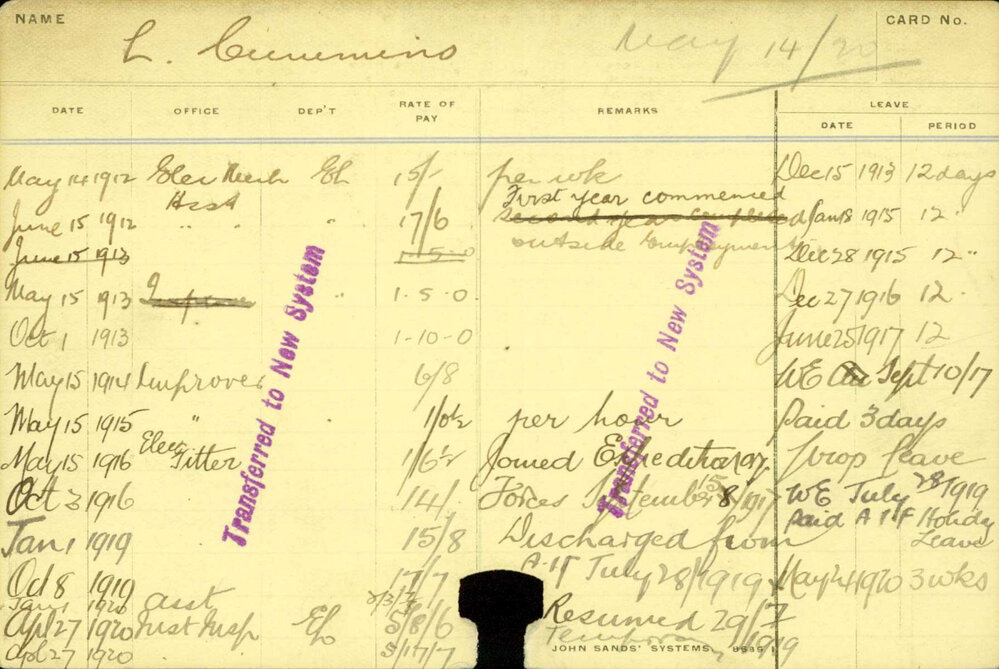 NAME L. Cummins May 14/20 CARD No.
DATE OFFICE DEP'T RATE OF PAY REMARKS LEAVE
DATE PERIOD
May 14 1912 Elec Mech El 15/- per wk Dec 15 1913 12 days
Asst First year commenced
June 15 1912 " " " 17/6 Jan 8 1915 12 "
outside Employment
June 15 1913 1-5-0 Dec 28 1915 12 "
May 15 1913 " 1-5-0 Dec 27 1916 12 "
Oct 1 1913 1-10-0 June 25 1917 12
May 15 1914 Improver 6/8 WE Sept 10/17
May 15 1915 " per hour Paid 3 days
May 15 1916 Elec Fitter Joined Expedition Prop leave
Oct 3 1916 14/- Forces September 8/1917 WE July 28 1919
Paid AIF Holiday Leave
Jan 1 1919 15/8 Discharged from
Oct 8 1919 17/7 AIF July 28/1919 May 24 1920 3 wks
Jan 1 1920 asst
Apl 27 1920 Inst Insp 5/8/6 Resumed 29/7 1919
Apl 27 1920 5/17/7 Temporary
Transferred to New System
Transferred to New System
JOHN SANDS' SYSTEMS.